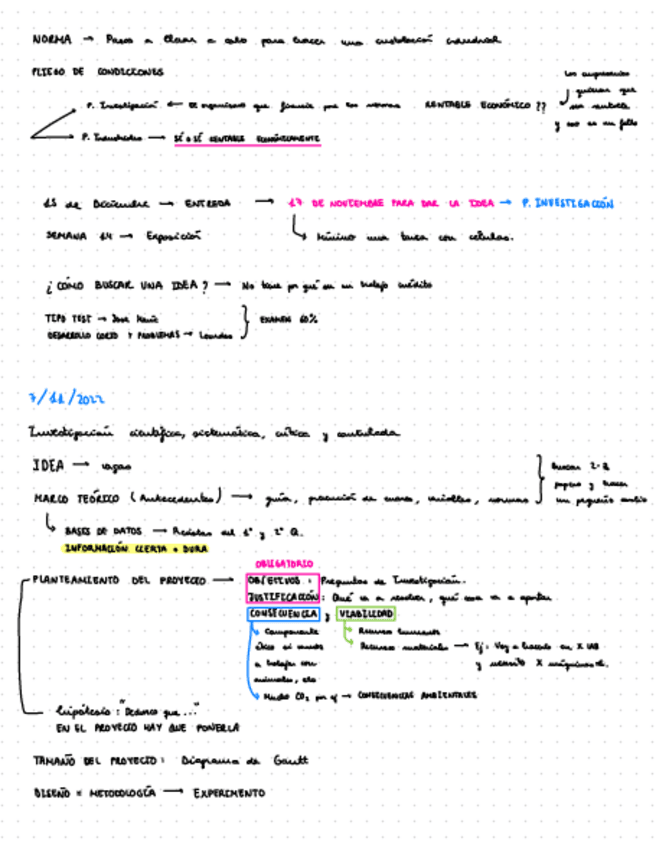 NORMA → Pasos a llevar a cabo para hacer una instalación industrial
PLIEGO DE CONDICIONES
P. Investigación ← El organismo que financia pone las normas RENTABLE ECONÓMICO ??
Los empresarios quieren que sea rentable y eso es un fallo
P. Industriales → SÍ o SÍ RENTABLE ECONÓMICAMENTE
15 de Diciembre → ENTREGA → 17 DE NOVIEMBRE PARA DAR LA IDEA → P. INVESTIGACIÓN
SEMANA 14 → Exposición
Mínimo una tarea con células.
¿CÓMO BUSCAR UNA IDEA? → No tiene por qué ser un trabajo inédito
TIPO TEST → José María
DESARROLLO CORTO Y PROBLEMAS → Lourdes
EXAMEN 60%
7/11/2022
Investigación científica, sistemática, crítica y controlada
IDEA → vagas
MARCO TEÓRICO (Antecedentes) → guía, prevención de errores, variables, normas
Buscar 2-3 papers y hacer un pequeño cambio
BASES DE DATOS → Revistas del 1º y 2º Q.
INFORMACIÓN CIERTA + DURA
OBLIGATORIO
PLANTEAMIENTO DEL PROYECTO → OBJETIVOS : Preguntas de Investigación.
JUSTIFICACIÓN : Qué va a resolver, qué cosa va a aportar.
CONSECUENCIA y VIABILIDAD
Componente ético si vamos a trabajar con animales, etc
Recursos humanos
Recursos materiales → Ej: Voy a hacerlo en X LAB y necesito X máquinas etc.
Mucho CO₂ por ej → CONSECUENCIAS AMBIENTALES
hipótesis : "Deduzco que ..."
EN EL PROYECTO HAY QUE PONERLA
TAMAÑO DEL PROYECTO : Diagrama de Gantt
DISEÑO = METODOLOGÍA → EXPERIMENTO